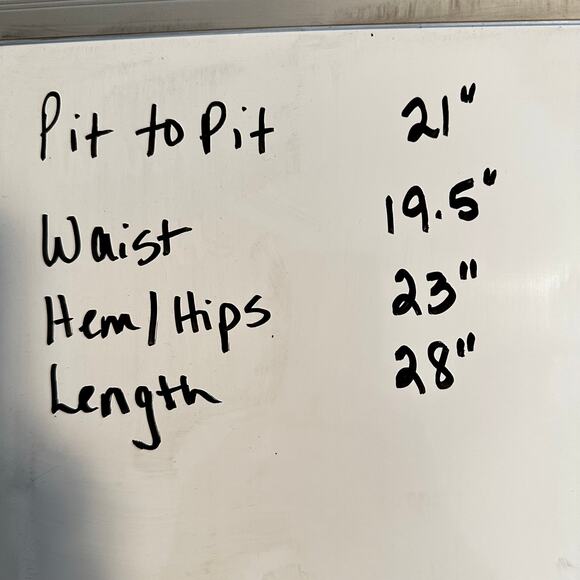 Pit to Pit 21"
Waist 19.5"
Hem/Hips 23"
Length 28"